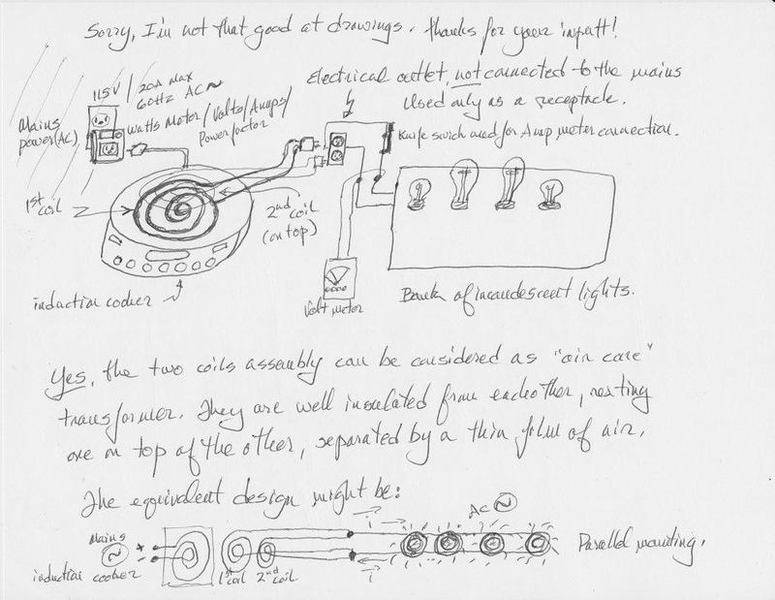 Sorry, I'm not that good at drawings. Thanks for your inputt!
Electrical outlet, not connected to the mains
Used only as a receptacle.
115V / 20A max
60Hz AC ~
Mains
power (AC)
Watts Meter / Volts / Amps /
Power factor
Knife swich used for Amp, meter connection.
1st coil
2nd coil
(on top)
induction cooker
Volt meter
Bank of incandescent lights.
Yes, the two coils assembly can be considered as "air core"
transformer. They are well insulated from eachother, resting
one on top of the other, separated by a thin film of air.
The equivalent design might be:
AC ~
Mains
~ +
-
i
i
Parallel mounting.
induction cooker
1st coil 2nd coil